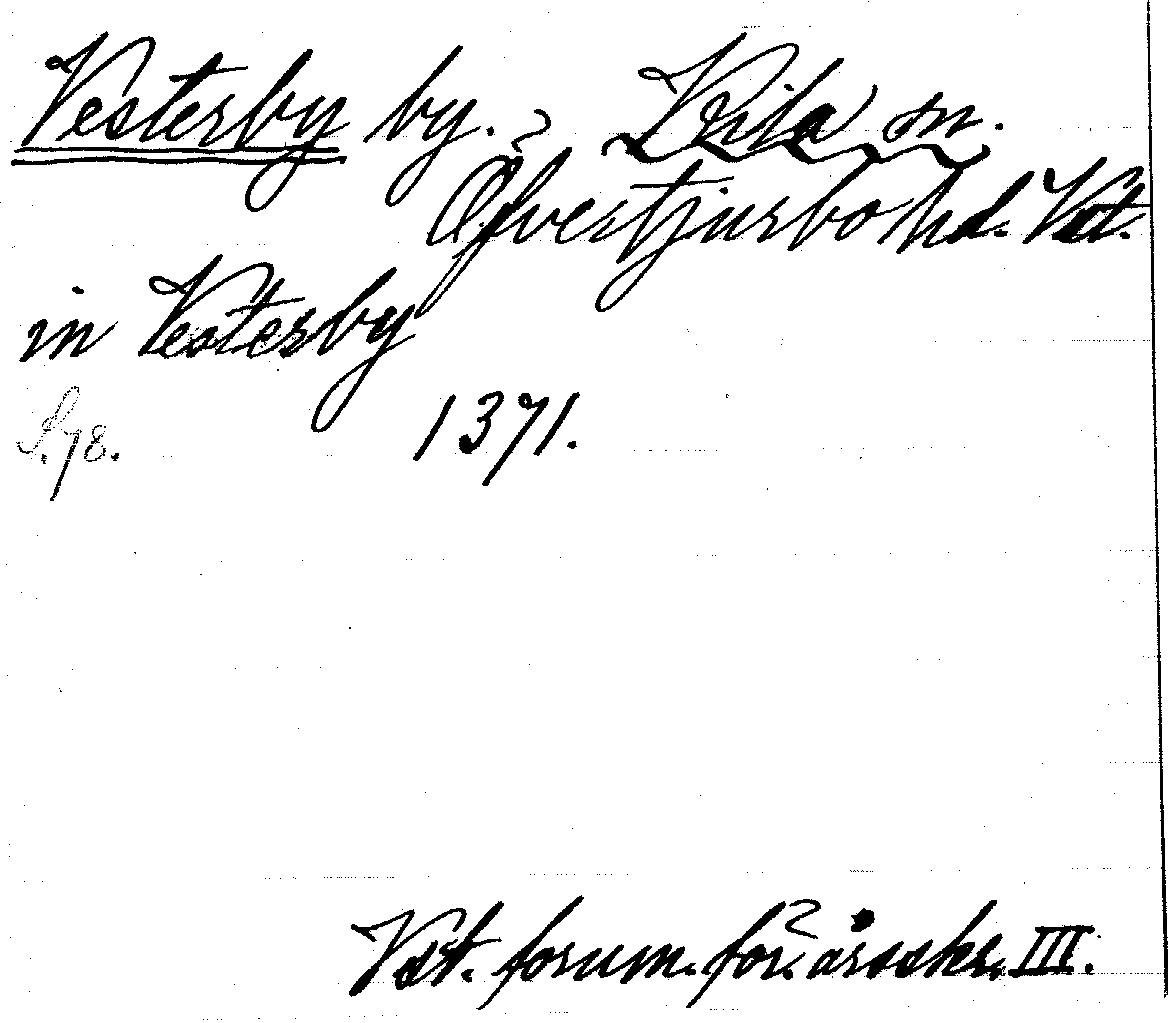 Vesterby by. Kila sn.
Öfvertjurbo hd. Vst.
in Vesterby
S. 78. 1371.
Vst. fornm. för. årsskr. III.